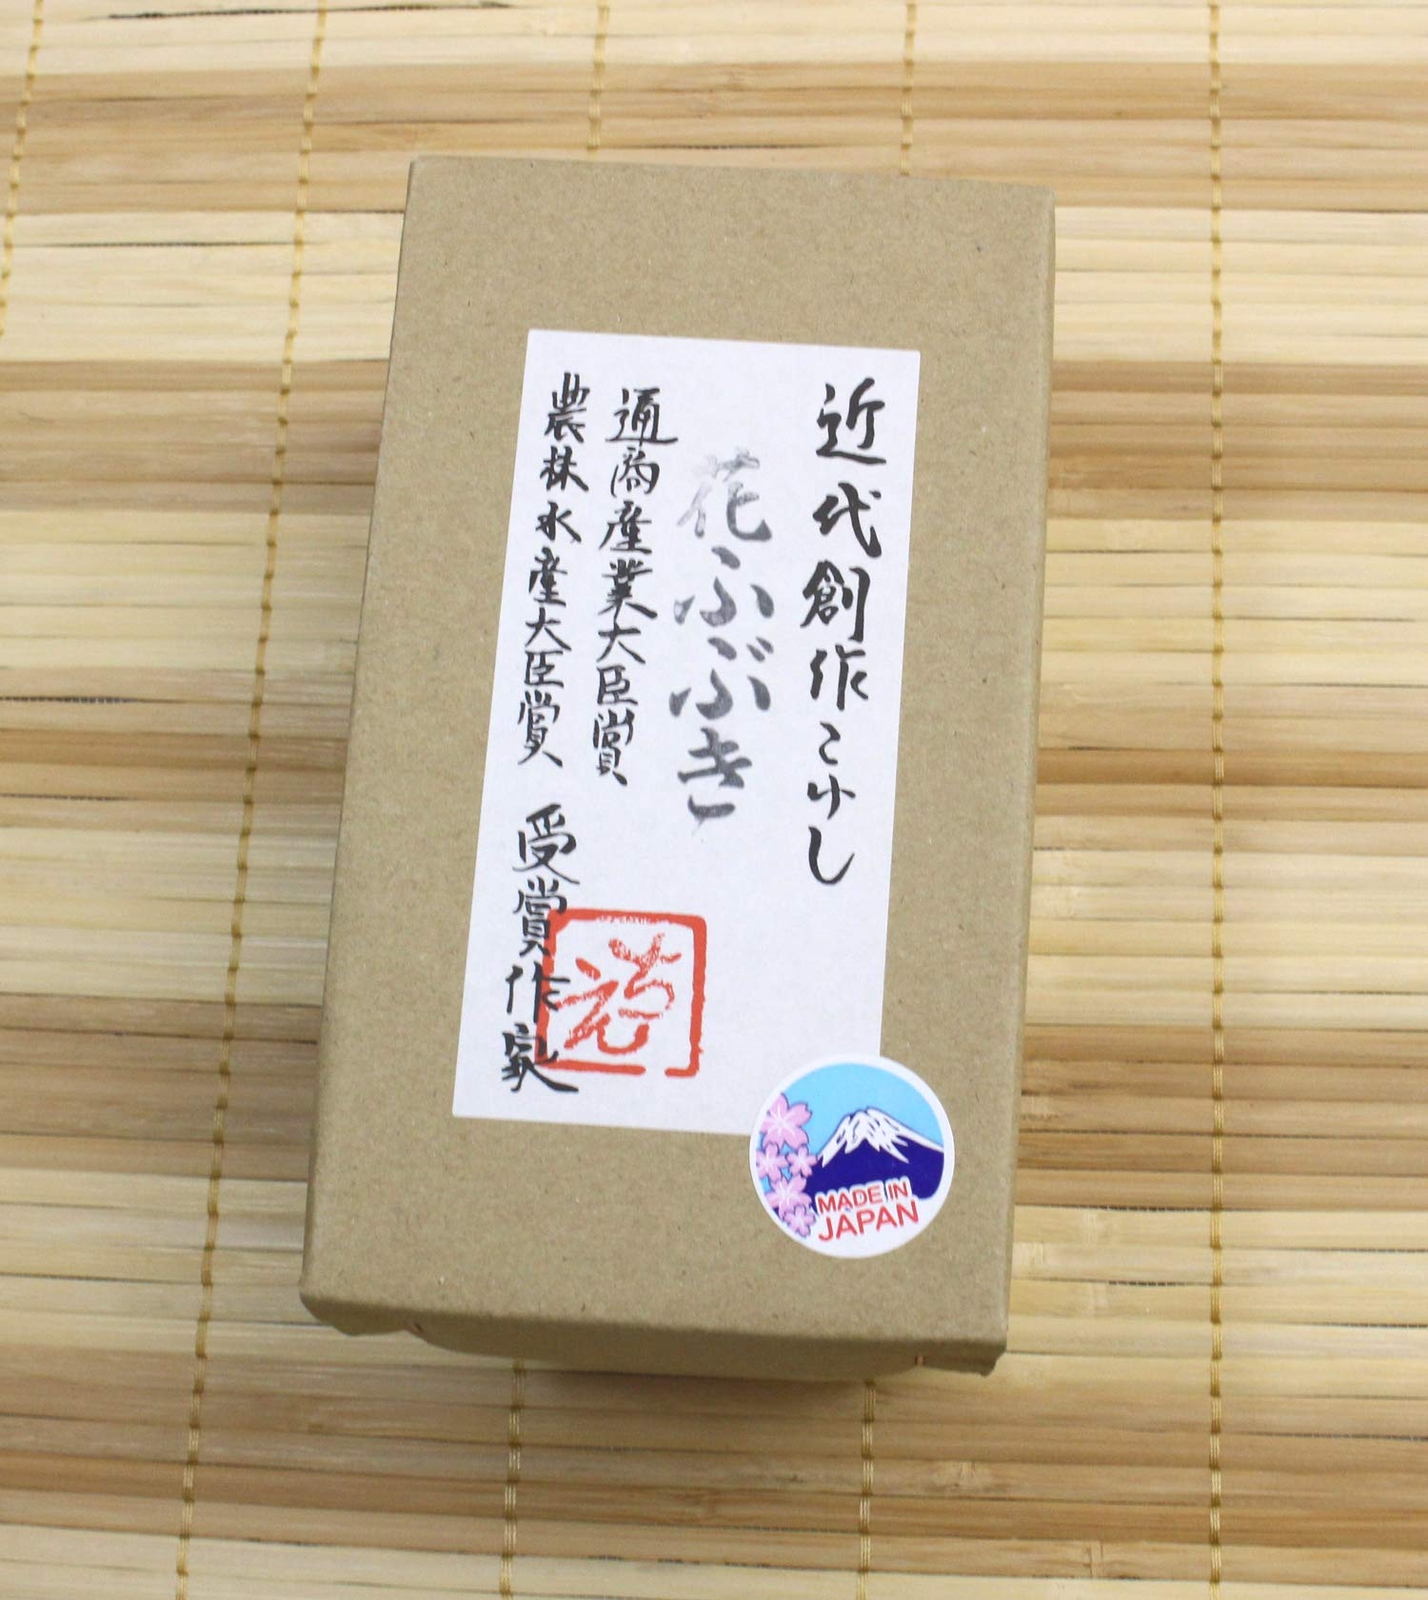 近代創作こけし
花ふぶき
通商産業大臣賞
農林水産大臣賞 受賞作家
MADE IN
JAPAN